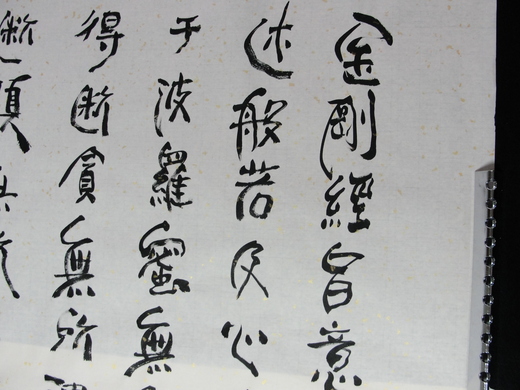 金剛經旨意
述般若及心
于波羅蜜無
得断貪無所
断